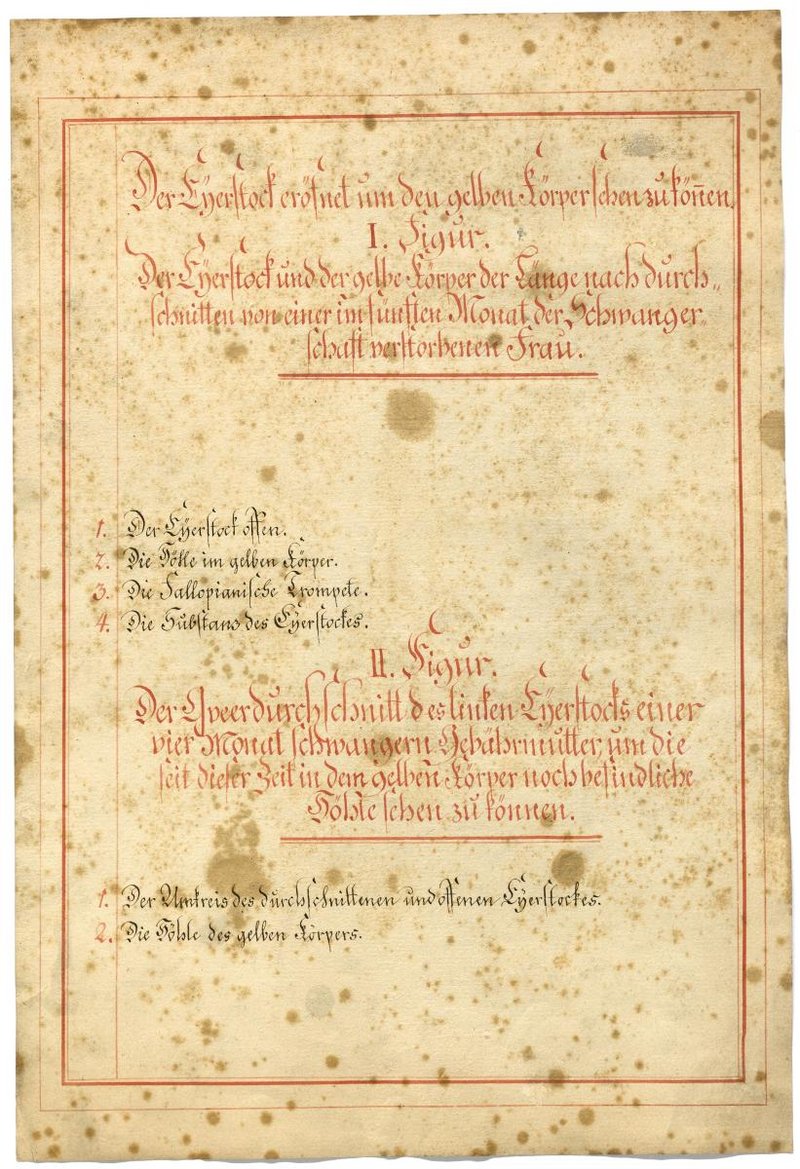 Der Eÿerstock eröfnet um den gelben Körper sehen zu kön̄en.
I. Figur.
Der Eÿerstock und der gelbe Körper der Länge nach durch„
schnitten von einer im fünften Monat der Schwanger„
schaft verstorbenen Frau.
1. Der Eÿerstock offen.
2. Die Hölle im gelben Körper.
3. Die Fallopianische Trompete.
4. Die Substans des Eÿerstockes.
II. Figur.
Der Qveerdurchschnitt des linken Eÿerstocks einer
vier Monat schwangern Gebährmutter, um die
seit dieser Zeit in dem gelben Körper noch befindliche
Höhle sehen zu können.
1. Der Umkreis des durchschnittenen und offenen Eÿerstockes.
2. Die Höhle des gelben Körpers.